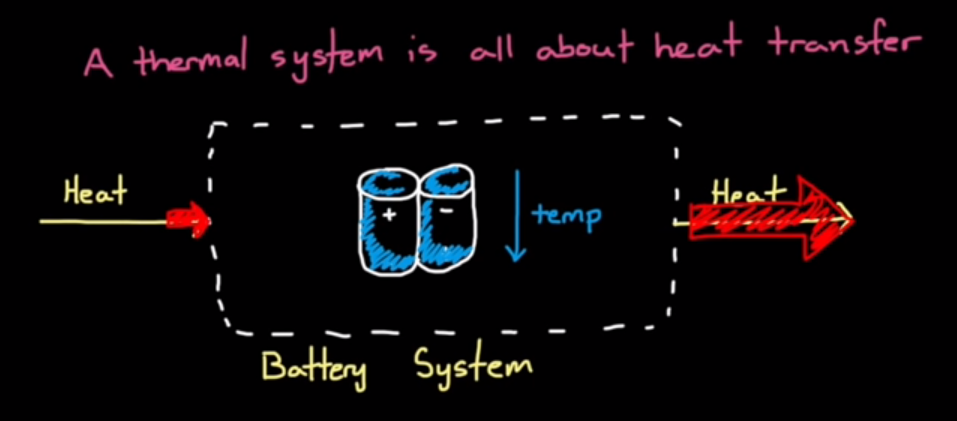 A thermal system is all about heat transfer
Heat
Heat
+ -
temp
Battery System